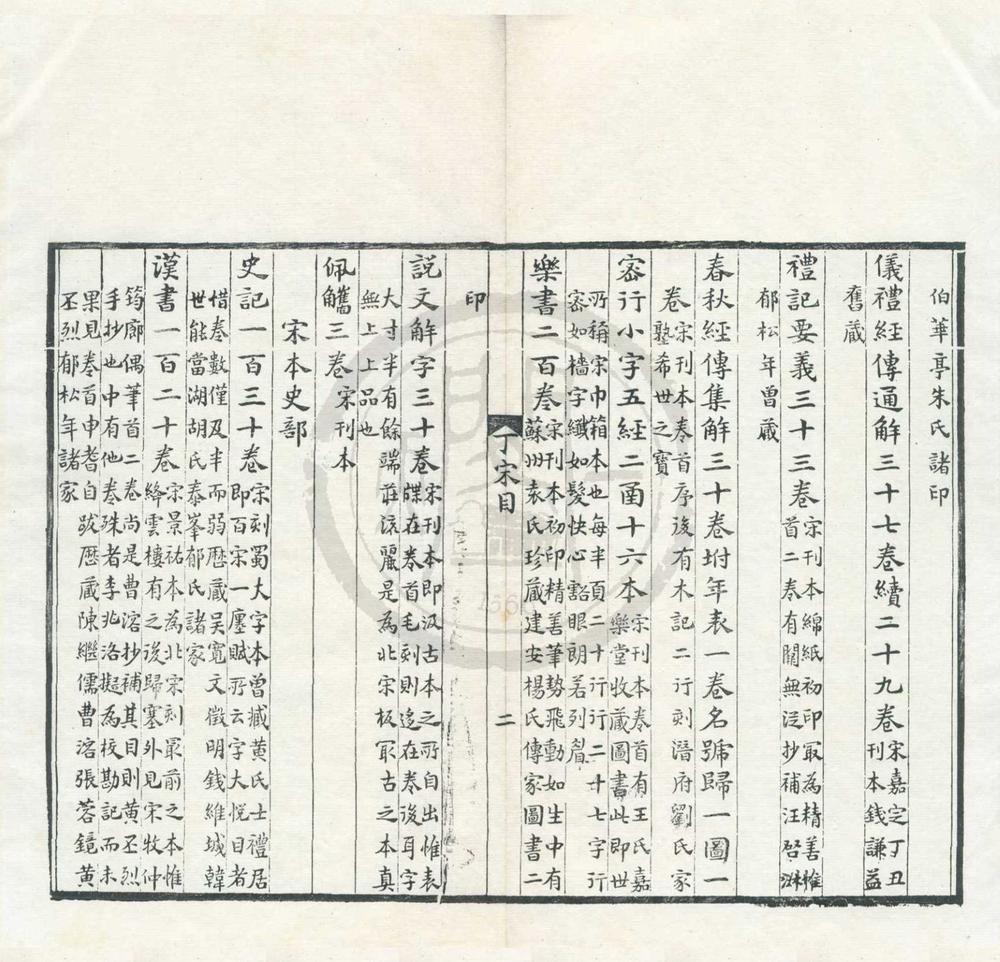 伯華亭朱氏諸印
儀禮經傳通解三十七卷續二十九卷宋嘉定丁丑
刊本錢謙益
舊藏
禮記要義三十三卷宋刊本綿紙初印冣為精善惟
首二卷有闕無從抄補汪啓淋
郁松年曾藏
春秋經傳集解三十卷坿年表一卷名號歸一圖一
卷宋刊本卷首序後有木記二行刻潛府劉氏家
塾希世之寶
宻行小字五經二函十六本宋刊本卷首有王氏嘉
樂堂收藏圖書此即世
所稱宋巾箱本也每半頁二十行行二十七字行
密如檣字纖如髮快心豁眼朗若列眉
樂書二百卷宋刊本初印精善筆勢飛動如生中有
蘇州袁氏珍藏建安楊氏傳家圖書二
印
丁宋目
二
說文解字三十卷宋刊本即汲古本之所自出惟表
牒在卷首毛刻則逡在卷後耳字
大寸半有餘端莊流麗是為北宋板冣古之本真
無上上品也
佩觿三卷宋刊本
宋本史部
史記一百三十卷宋刻蜀大字本曾藏黄氏士禮居
即百宋一廛賦所云字大悅目者
惜卷數僅及半而弱歷藏吴寛文徵明錢維城韓
世能當湖胡氏泰峯郁氏諸家
漢書一百二十卷宋景祐本為北宋刻冣前之本惟
絳雲樓有之後歸塞外見宋牧仲
筠廊偶筆首二卷尚是曹溶抄補其目則黄丕烈
手抄也中有他卷殊者李兆洛擬為校勘記而未
果見卷首申耆自跋歷藏陳繼儒曹溶張蓉鏡黄
丕烈郁松年諸家